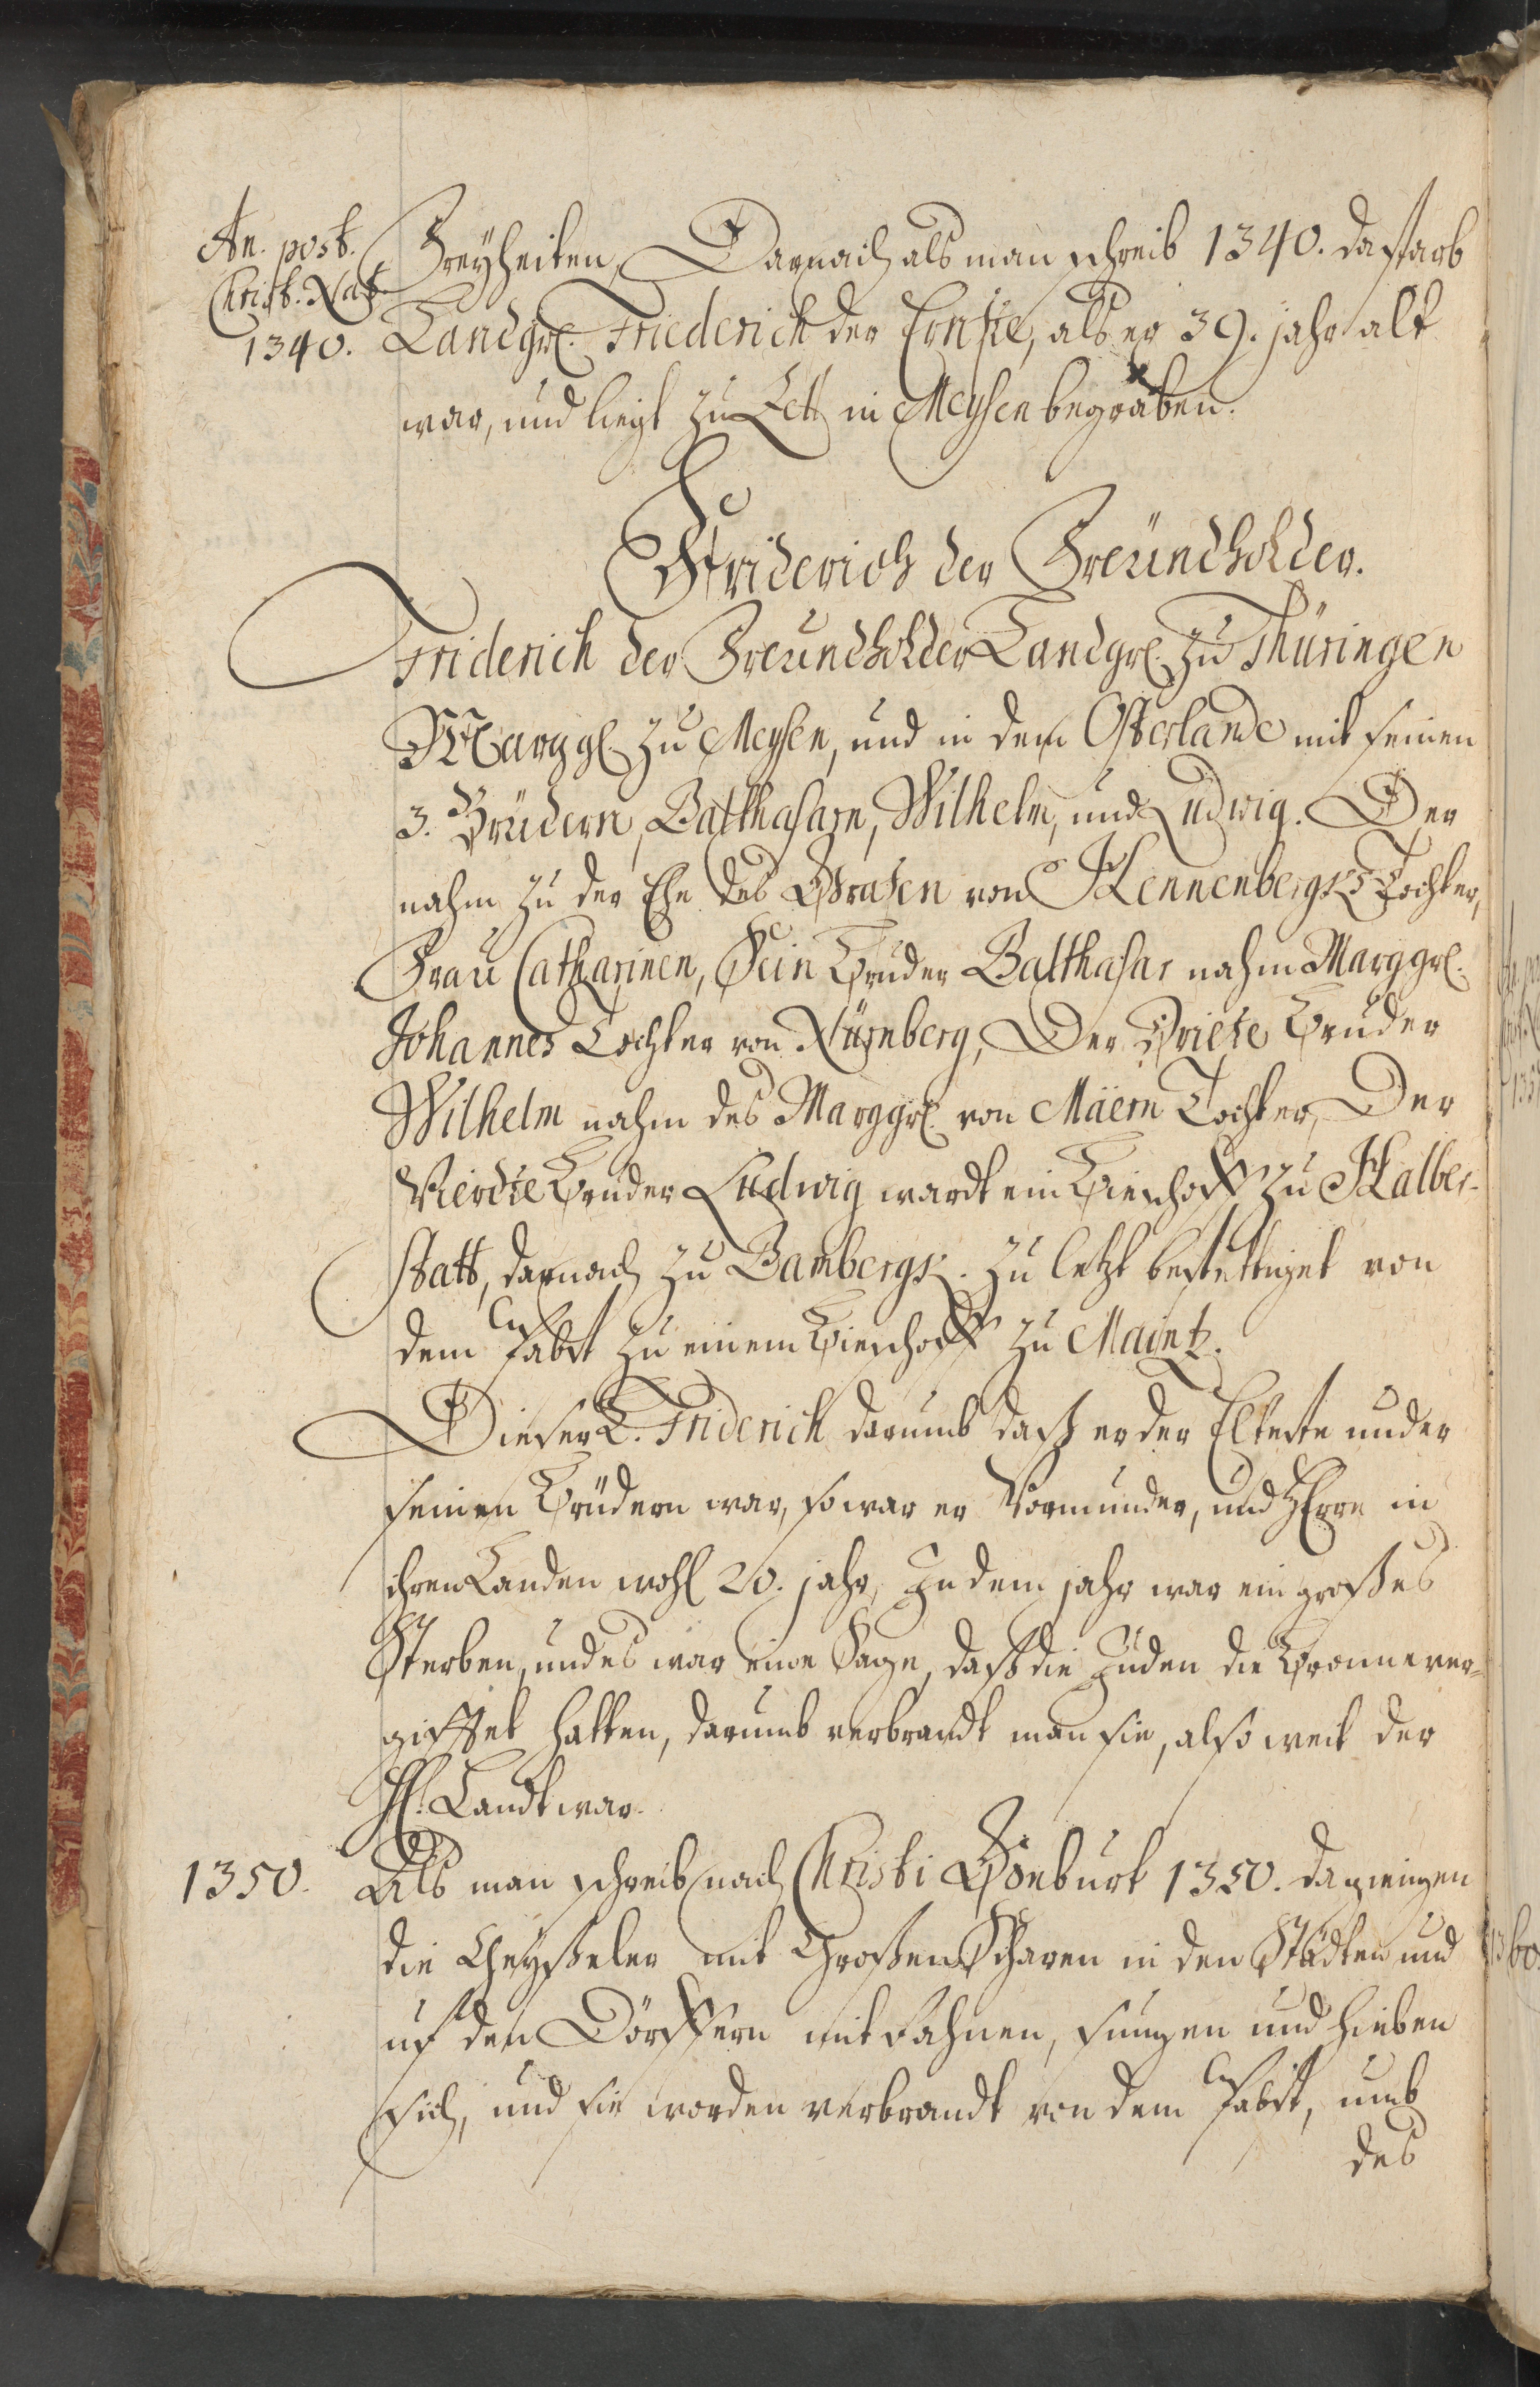 An. post.
Christ. Nat.
1340.
Freyheiten, Darnach als man schreib 1340. da starb
Landgr. Friederich der Ernste, als er 39. jahr alt
war, und liegt zu Zell in Meysen begraben.
Friderich der Freündholder.
Friderich der Freundholder Landgr. zu Thüringen
Marggr. zu Meysen, und in dem Osterlande mit seinen
3. Brüdern, Balthasarn, Wilhelm, und Ludwig. Der
nahm zu der Ehe des Grafen von Hennenbergk Tochter,
Frau Catharinen, Sein Bruder Balthasar nahm Marggr.
Johannes Tochter von Nürnberg, Der Driete Bruder
Wilhelm nahm des Marggr. von Mäern Tochter, Der
Vierdte Bruder Ludwig wardt ein Bischoff zu Halber-
statt, darnach zu Bambergk. zu letzt bestettiget von
dem Pabst zu einem Bischoff zu Maintz.
Dieser L. Friderich darumb dass er der Elteste under
seinen Brüdern war, so war er Vormunder, und Herre in
ihren Landen wohl 20. jahr, In dem jahr war ein großes
Sterben, und es war eine Sage, daß die Juden die Bronne ver-
gifftet hatten, darumb verbrandt man sie, also weit der
Hl. Landt war.
1350.
Als man schreib nach Christi Geburt 1350. da giengen
die Geyßeler mit Großen Scharen in den Städten und
uf den Dörffern mit Fahnen, sungen und hieben
sich, und sie worden verbrandt von dem Pabst, umb
des